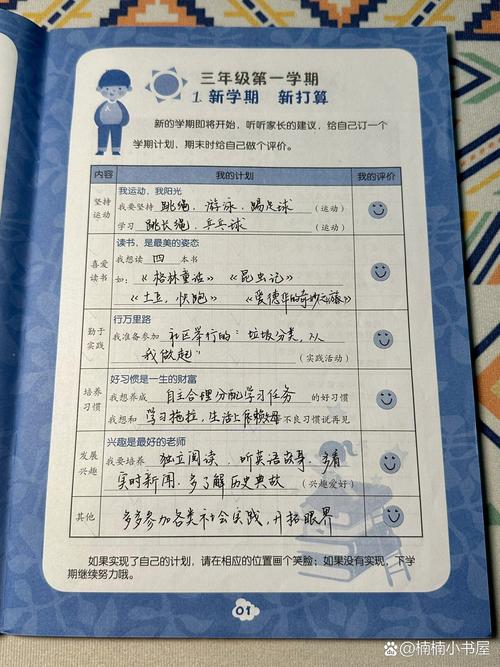 三年级第一学期
1. 新学期 新打算
新的学期即将开始，听听家长的建议，给自己订一个
学期计划，期末时给自己做个评价。
内容 我的计划 我的评价
坚持运动
我运动，我阳光
我要坚持 跳绳、游泳、踢足球 （运动）
学习 跳长绳、乒乓球 （运动）
喜爱读书
读书，是最美的姿态
我想读 四 本书
如：《格林童话》 《昆虫记》
《土豆，快跑》 《爱德华的奇妙之旅》
勤于实践
行万里路
我准备参加 社区举行的“垃圾分类，从
我做起” （实践活动）
培养习惯
好习惯是一生的财富
我想养成 自主合理分配学习任务 的好习惯
我想和 学习拖拉，生活上依赖父母 不良习惯说再见
发展兴趣
兴趣是最好的老师
我要培养 独立阅读、听英语、多看
实时新闻、多了解历史典故 （兴趣爱好）
其他 多多参加各类社会实践，开拓眼界
如果实现了自己的计划，请在相应的位置画个笑脸；如果没有实现，下学
期继续努力哦。
01
@楠楠小书屋